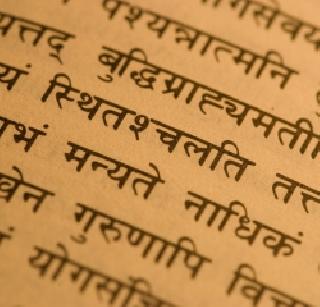 गसेवय
पश्यन्नात्मनि
यत्तद् बुद्धिग्राह्यमती
यं स्थितश्चलति तत्त
ाभं मन्यते नाधिकं
खेन गुरुणापि विचा
योगसंज्ञि